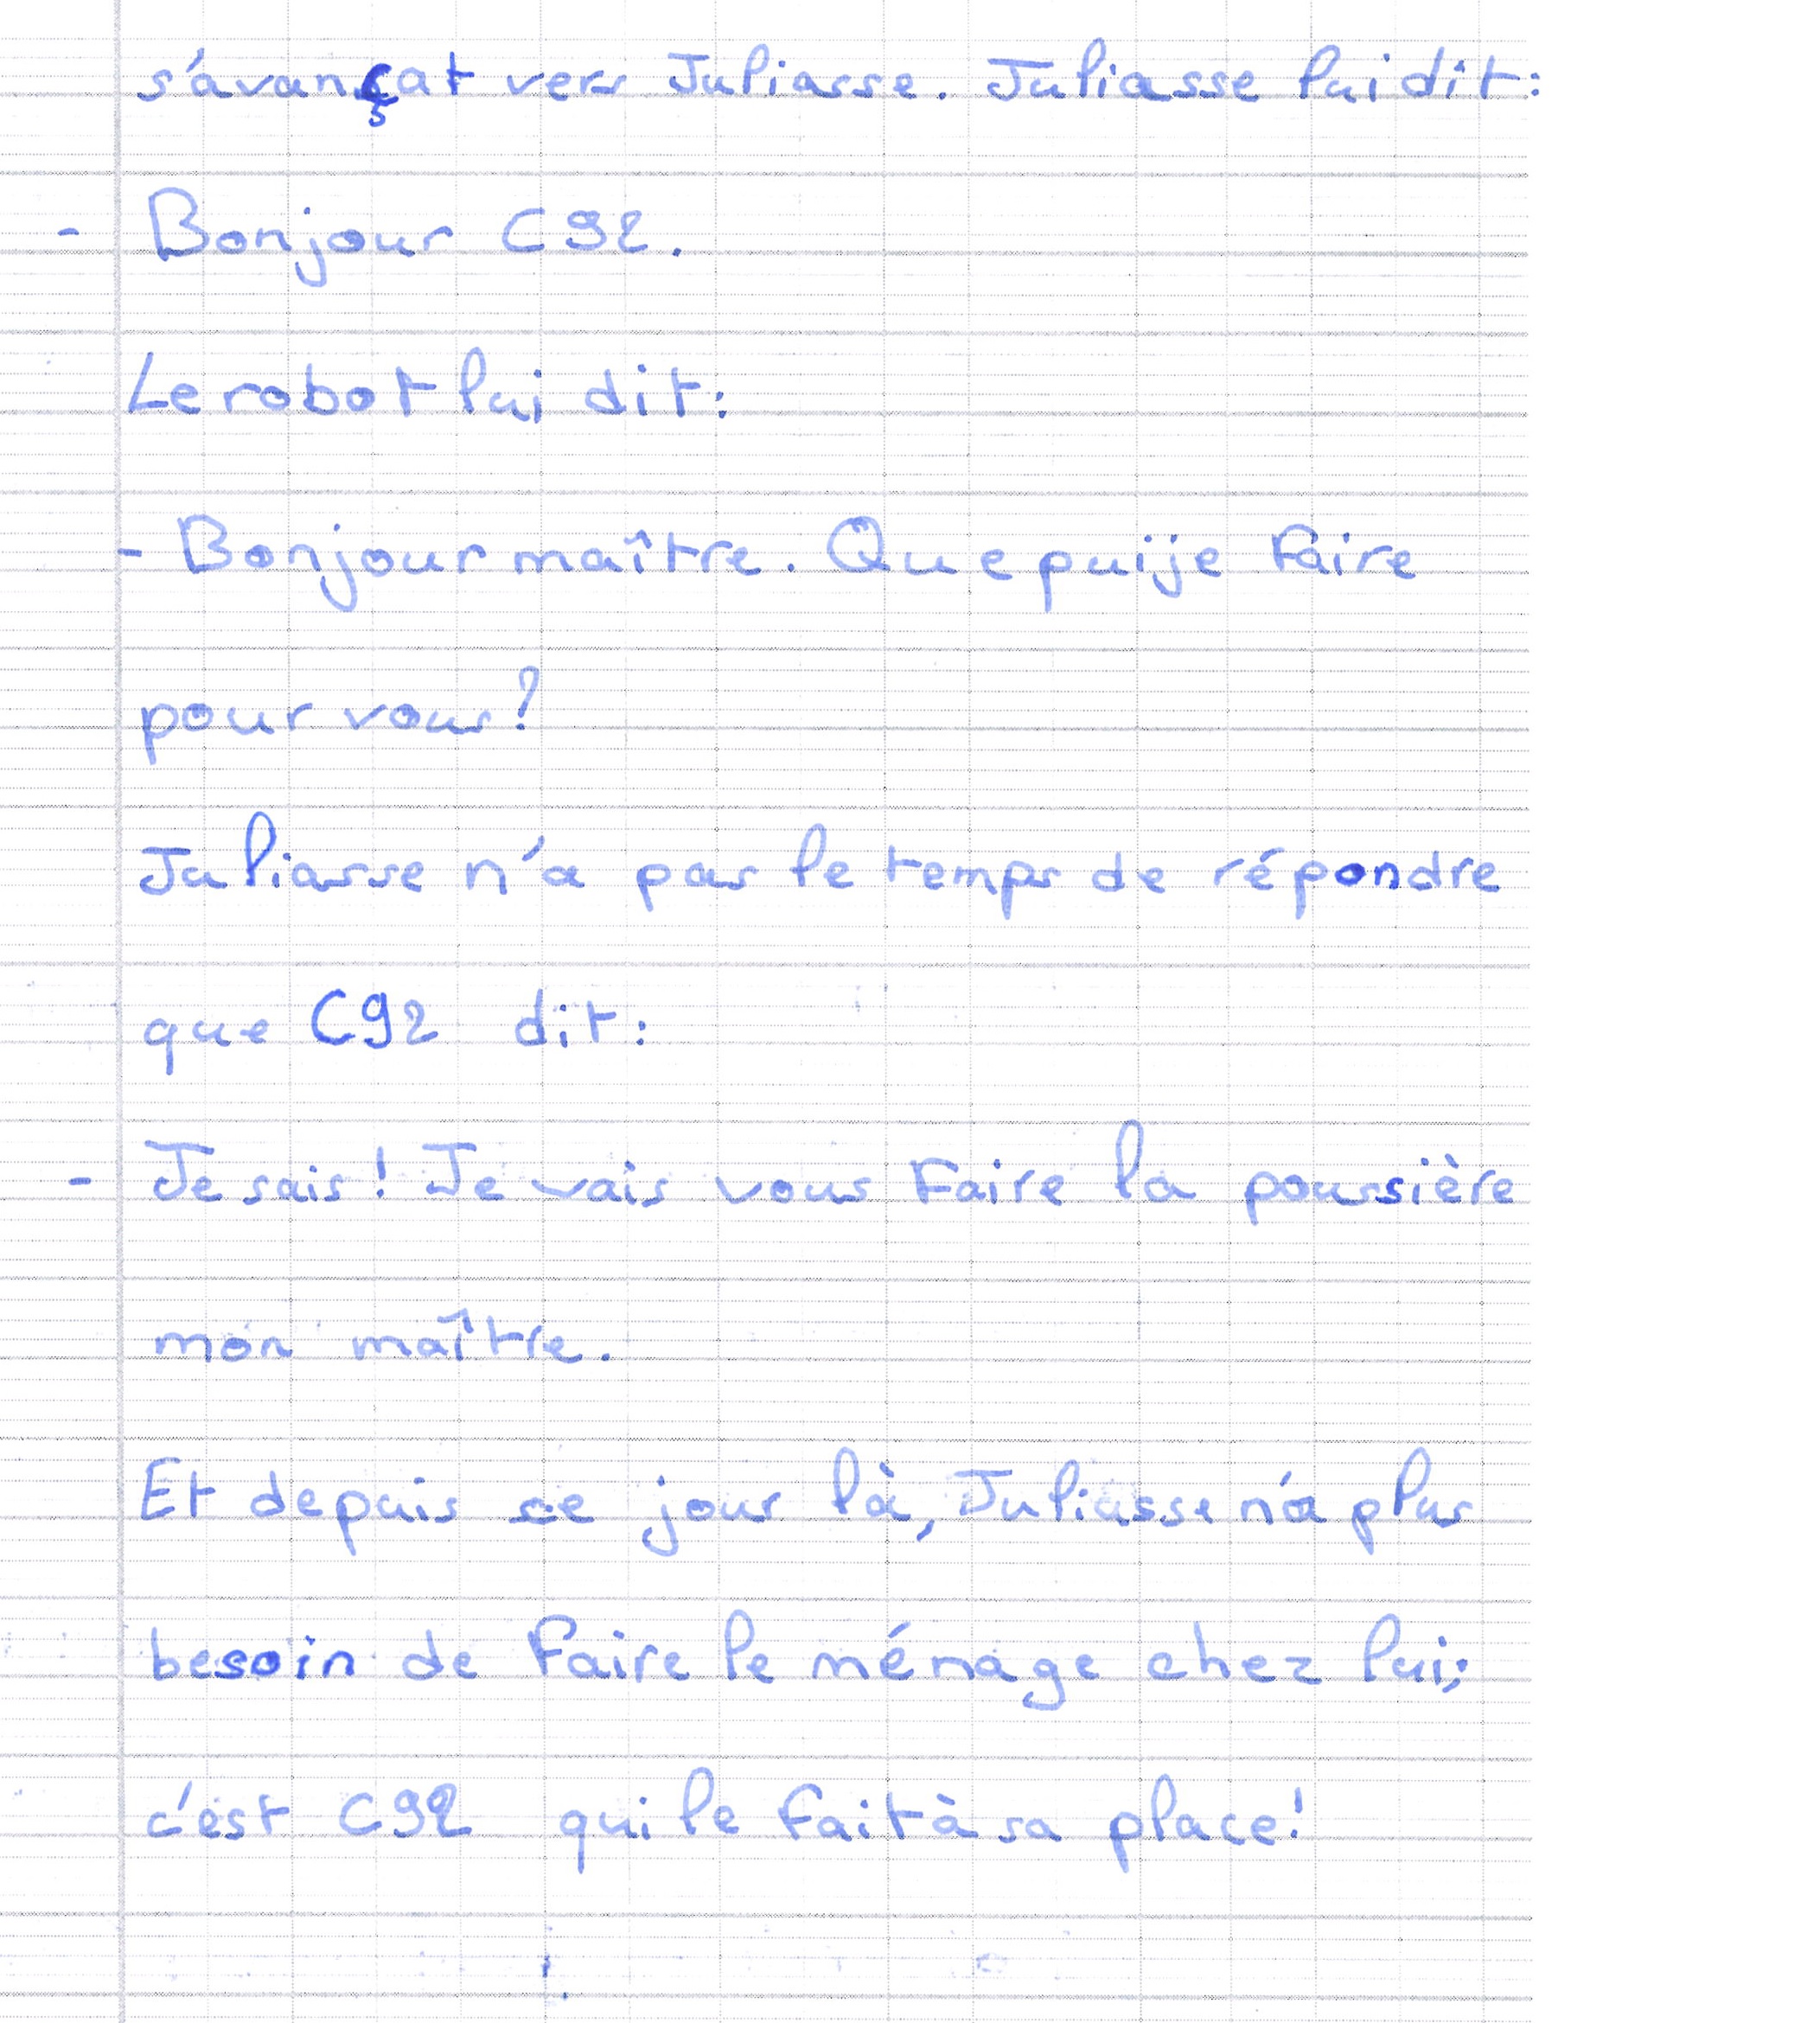 s'avançat vers Juliasse. Juliasse lui dit:
- Bonjour C92.
Le robot lui dit:
- Bonjour maître. Que puije faire
pour vous?
Juliasse n'a pas le temps de répondre
que C92 dit:
- Je sais! Je vais vous faire la poussière
mon maître.
Et depuis ce jour là, Juliasse n'a plus
besoin de faire le ménage chez lui;
c'est C92 qui le fait à sa place!